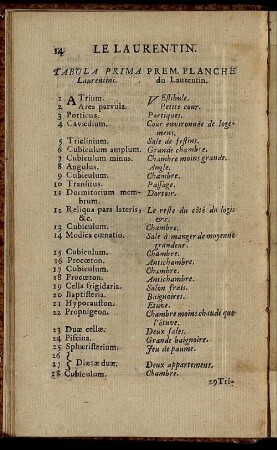 14 LE LAURENTIN.
TABULA PRIMA PREM. PLANCHE
Laurentini. du Laurentin.
1 ATrium. VEstibule.
2 Area parvula. Petite cour.
3 Porticus. Portiques.
4 Cavædium. Cour environnée de loge-
mens.
5 Triclinium. Sale de festins.
6 Cubiculum amplum. Grande chambre.
7 Cubiculum minus. Chambre moins grande.
8 Angulus. Angle.
9 Cubiculum. Chambre.
10 Transitus. Passage.
11 Dormitorium mem- Dortoir.
brum.
12 Reliqua pars lateris, Le reste du côté du logis
&c. &c.
13 Cubiculum. Chambre.
14 Modica cœnatio. Sale à manger de moyenne
grandeur.
15 Cubiculum. Chambre.
16 Procœton. Antichambre.
17 Cubiculum. Chambre.
18 Procœton. Antichambre.
19 Cella frigidaria. Salon frais.
20 Baptisteria. Baignoires.
21 Hypocauston. Etuve.
22 Propnigeon. Chambre moins chaude que
l'étuve.
23 Duæ cellæ. Deux sales.
24 Piscina. Grande baignoire.
25 Sphæristerium. Jeu de paume.
26 }
27 } Diætæ duæ. Deux appartement.
28 Cubiculum. Chambre.
29 Tri-